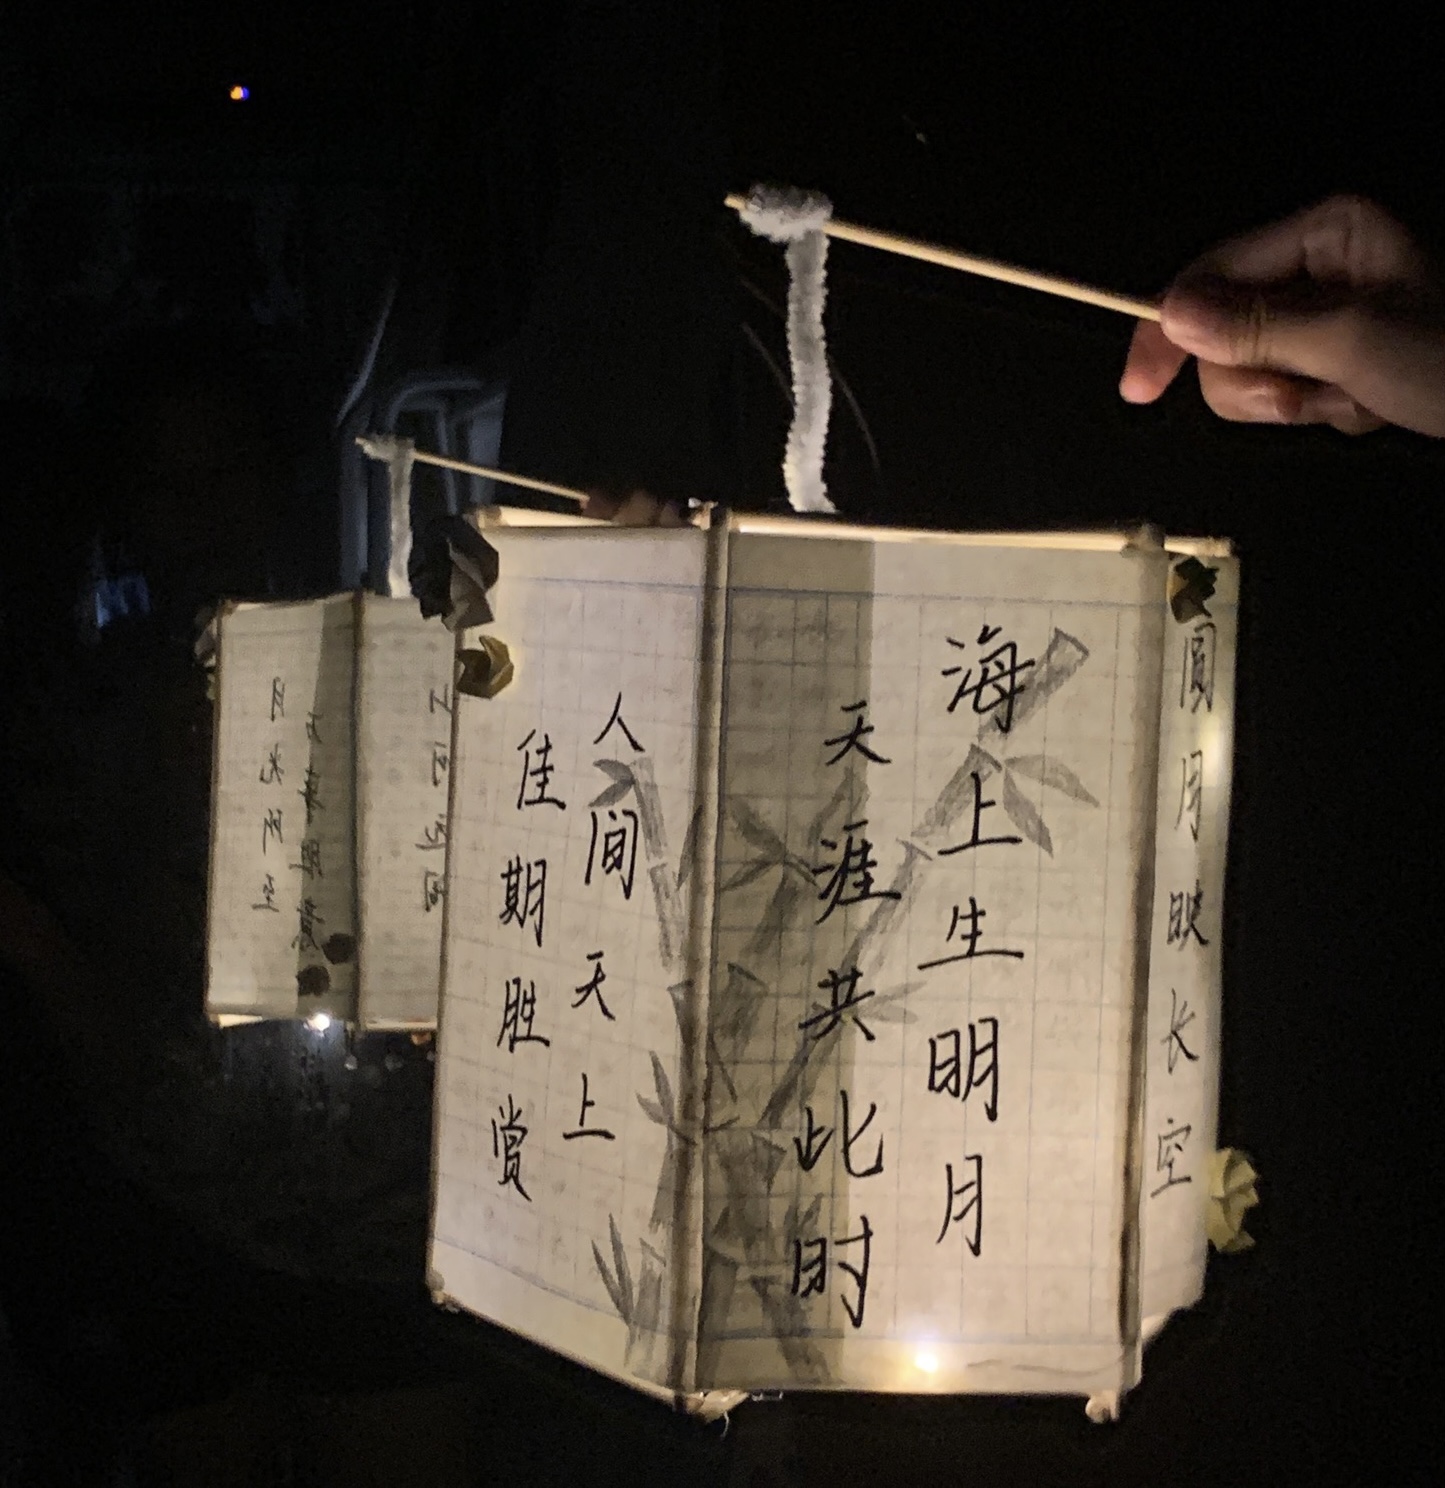 圆月映长空
海上生明月
天涯共此时
人间天上
佳期胜赏